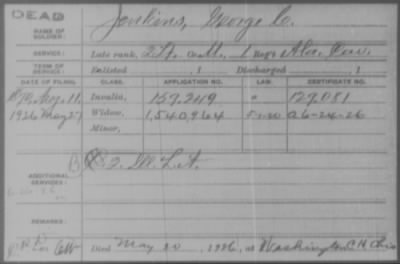 DEAD
NAME OF SOLDIER: Jenkins, George C.
SERVICE: Late rank, 2 Lt. Co. M, 1 Reg't Ala. Cav.
TERM OF SERVICE: Enlisted , 1 Discharged , 1
DATE OF FILING. CLASS. APPLICATION NO. LAW. CERTIFICATE NO.
Aug. 11, Invalid, 159,249 " 129,081
1926 May 27 Widow, 1,540,964 A6-24-26
Minor,
ADDITIONAL SERVICES: 2. Ill. L.A.
REMARKS:
Died May 20, 1926, at Washington C.H. Ohio